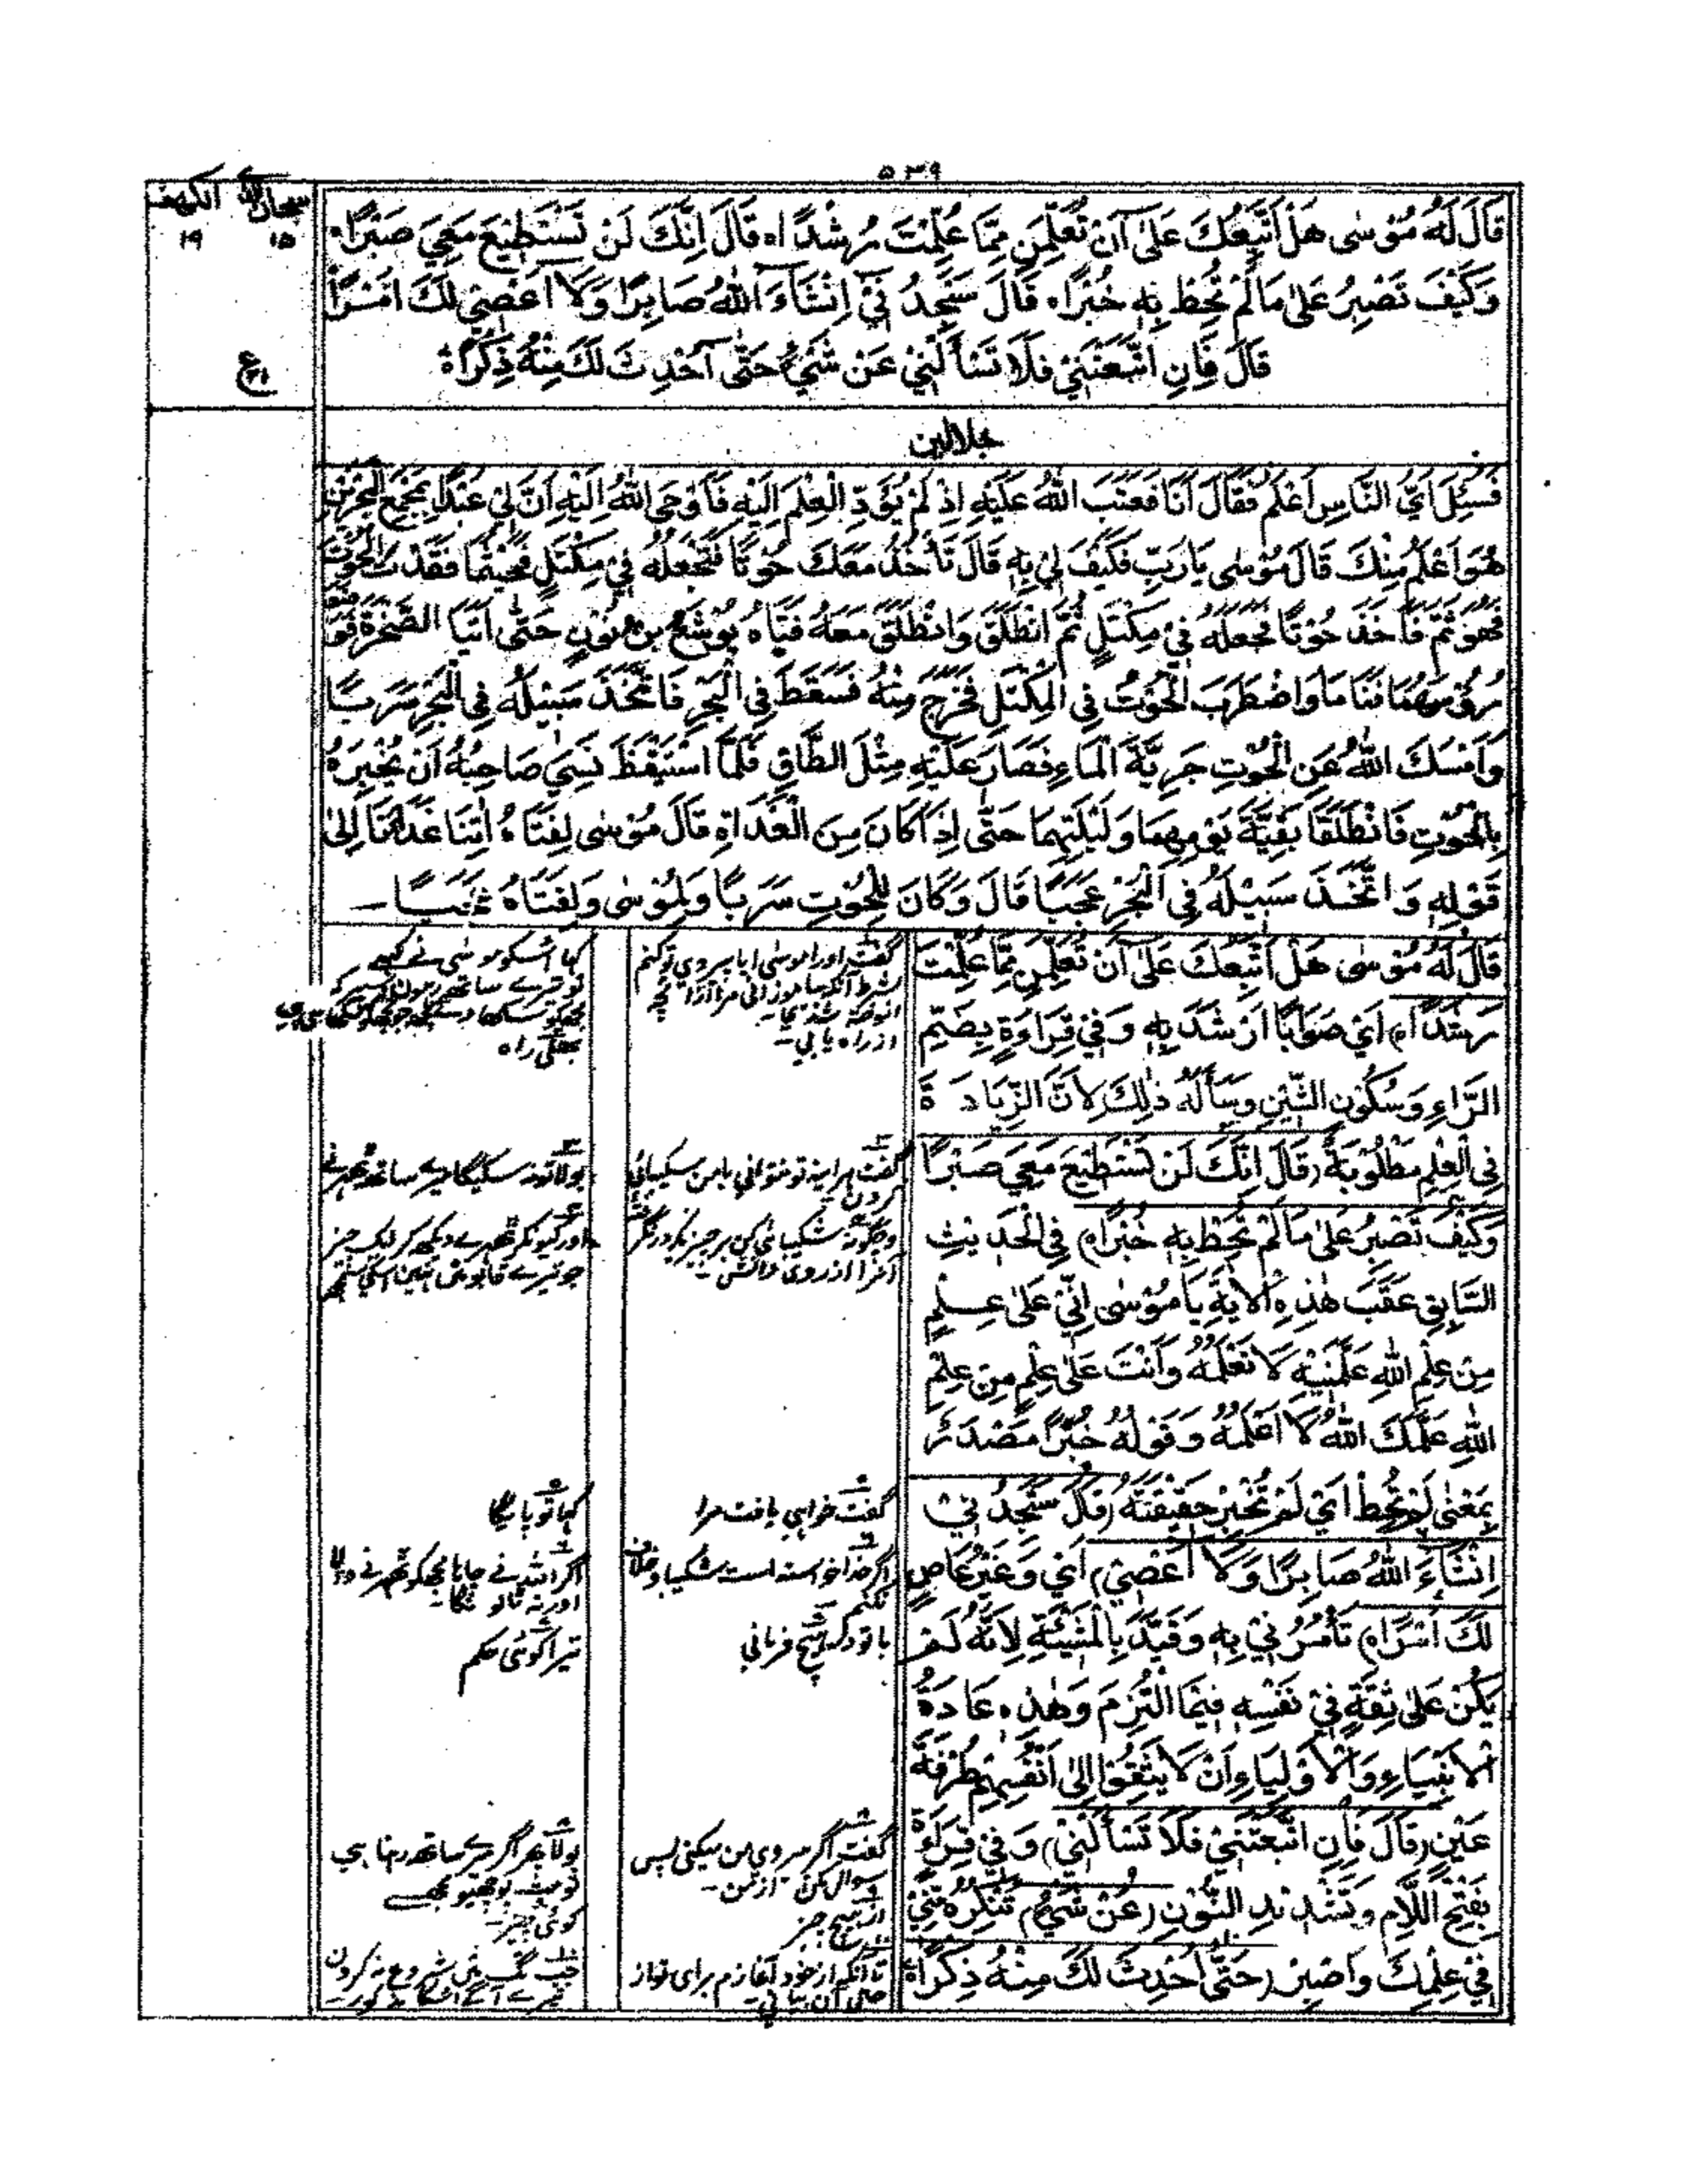 ٥٣٩
سبحان الذی الکهف
١٥ ١٩
قَالَ لَهُ مُوْسٰى هَلْ اَتَّبِعُكَ عَلٰٓى اَنْ تُعَلِّمَنِ مِمَّا عُلِّمْتَ رُشْدًاه قَالَ اِنَّكَ لَنْ تَسْتَطِيْعَ مَعِيَ صَبْرًاه
وَكَيْفَ تَصْبِرُ عَلٰى مَا لَمْ تُحِطْ بِهٖ خُبْرًاه قَالَ سَتَجِدُنِيْٓ اِنْشَآءَ اللّٰهُ صَابِرًا وَّلَآ اَعْصِيْ لَكَ اَمْرًا
قَالَ فَاِنِ اتَّبَعْتَنِيْ فَلَا تَسْأَلْنِيْ عَنْ شَيْءٍ حَتّٰٓى اُحْدِثَ لَكَ مِنْهُ ذِكْرًاه
ع
جلالين
فَسُئِلَ اَيُّ النَّاسِ اَعْلَمُ فَقَالَ اَنَا فَعَتَبَ اللّٰهُ عَلَيْهِ اِذْ لَمْ يَرُدَّ الْعِلْمَ اِلَيْهِ فَاَوْحَى اللّٰهُ اِلَيْهِ اَنَّ لِيْ عَبْدًا بِمَجْمَعِ الْبَحْرَيْنِ
هُوَ اَعْلَمُ مِنْكَ قَالَ مُوْسٰى يَارَبِّ فَكَيْفَ لِيْ بِهٖ قَالَ تَأْخُذُ مَعَكَ حُوْتًا فَتَجْعَلُهُ فِيْ مِكْتَلٍ فَحَيْثُمَا فَقَدْتَ الْحُوْتَ
فَهُوَ ثَمَّ فَاَخَذَ حُوْتًا فَجَعَلَهُ فِيْ مِكْتَلٍ ثُمَّ انْطَلَقَ وَانْطَلَقَ مَعَهُ فَتَاهُ يُوْشَعُ بْنُ نُوْنٍ حَتّٰى اَتَيَا الصَّخْرَةَ فَوَضَعَا
رُؤُسَهُمَا فَنَامَا وَاضْطَرَبَ الْحُوْتُ فِي الْمِكْتَلِ فَخَرَجَ مِنْهُ فَسَقَطَ فِي الْبَحْرِ فَاتَّخَذَ سَبِيْلَهُ فِي الْبَحْرِ سَرَبًا
وَاَمْسَكَ اللّٰهُ عَنِ الْحُوْتِ جَرِيَّةَ الْمَاءِ فَصَارَ عَلَيْهِ مِثْلَ الطَّاقِ فَلَمَّا اسْتَيْقَظَ نَسِيَ صَاحِبُهُ اَنْ يُخْبِرَهُ
بِالْحُوْتِ فَانْطَلَقَا بَقِيَّةَ يَوْمِهِمَا وَلَيْلَتِهِمَا حَتّٰى اِذَا كَانَ مِنَ الْغَدَاةِ قَالَ مُوْسٰى لِفَتَاهُ اٰتِنَا غَدَآءَنَا اِلٰى
قَوْلِهٖ وَاتَّخَذَ سَبِيْلَهُ فِي الْبَحْرِ عَجَبًا قَالَ وَكَانَ لِلْحُوْتِ سَرَبًا وَلِمُوْسٰى وَلِفَتَاهُ عَجَبًا —
قَالَ لَهُ مُوْسٰى هَلْ اَتَّبِعُكَ عَلٰٓى اَنْ تُعَلِّمَنِ مِمَّا عُلِّمْتَ
رَشَدًاه) اَيْ صَوَابًا اَرْشُدُ بِهٖ وَفِيْ قِرَاءَةٍ بِضَمِّ
الرَّاءِ وَسُكُوْنِ الشِّيْنِ وَسَأَلَهُ ذٰلِكَ لِاَنَّ الزِّيَادَةَ
فِي الْعِلْمِ مَطْلُوْبَةٌ (قَالَ اِنَّكَ لَنْ تَسْتَطِيْعَ مَعِيَ صَبْرًا
وَكَيْفَ تَصْبِرُ عَلٰى مَا لَمْ تُحِطْ بِهٖ خُبْرًاه) فِي الْحَدِيْثِ
السَّابِقِ عَقَبَ هٰذِهِ الْاٰيَةِ يَا مُوْسٰى اِنِّيْ عَلٰى عِلْمٍ
مِنْ عِلْمِ اللّٰهِ عَلَّمَنِيْهِ لَا تَعْلَمُهُ وَاَنْتَ عَلٰى عِلْمٍ مِنْ عِلْمِ
اللّٰهِ عَلَّمَكَ اللّٰهُ لَا اَعْلَمُهُ وَقَوْلُهُ خُبْرًا مَصْدَرٌ
بِمَعْنٰى لَمْ تُحِطْ اَيْ لَمْ تُخْبَرْ حَقِيْقَتَهُ (قَالَ سَتَجِدُنِيْ
اِنْشَآءَ اللّٰهُ صَابِرًا وَّلَا اَعْصِيْ) اَيْ وَغَيْرَ عَاصٍ
لَكَ اَمْرًاه) تَأْمُرُنِيْ بِهٖ وَقَيَّدَ بِالْمَشِيْئَةِ لِاَنَّهُ لَمْ
يَكُنْ عَلٰى ثِقَةٍ فِيْ نَفْسِهٖ فِيْمَا الْتَزَمَ وَهٰذِهٖ عَادَةُ
الْاَنْبِيَاءِ وَالْاَوْلِيَاءِ اَنْ لَا يَثِقُوْا اِلٰى اَنْفُسِهِمْ طُرْفَةَ
عَيْنٍ (قَالَ فَاِنِ اتَّبَعْتَنِيْ فَلَا تَسْأَلْنِيْ) وَفِيْ قِرَاءَةٍ
بِفَتْحِ اللَّامِ وَتَشْدِيْدِ النُّوْنِ (عَنْ شَيْءٍ) تُنْكِرُهُ مِنِّيْ
فِيْ عِلْمِكَ وَاصْبِرْ (حَتّٰى اُحْدِثَ لَكَ مِنْهُ ذِكْرًاه
گفت اورا موسیٰ آیا پیروی تو کنم
بشرط آنکه بیاموزانی مرا ازآنچه
آموخته شد
از راه یابی —
گفت هر آینه تو نتوانی با من شکیبائی
کردن
وچگونه شکیبائی کنی بر چیزیکه در نگرفتۀ
آنرا از روی دانش —
گفت خواهی یافت مرا
اگر خدا خواسته است شکیبا و خلاف
نکنم
با تو در هیچ فرمانی
گفت اگر پیروی من میکنی پس
سوال مکن از من —
از هیچ چیز
تا آنکه از خود آغازم برای تو از
حال آن بیانی
کہا اسکو موسیٰ نے کہے
تو تیرے ساتھ رہوں اسپر کہ
مجھکو سکھا دے کچھ جو تجھکو سکھائی
بھلی راہ
بولا تو نہ سکیگا میرے ساتھ ٹھہرنے
اور کیونکر ٹھہرے دیکھ کر ایک چیز
جو تیرے قابو میں نہیں اسکی سمجھ
کہا تو پائیگا
اگر اللہ نے چاہا مجھکو ٹھہرنے والا
اور نہ ٹالونگا
تیرا کوئی حکم
بولا پھر اگر میرے ساتھ رہتا ہے
تو مت پوچھیو مجھسے
کوئی چیز —
جب تک میں شروع نہ کروں
تیرے آگے اسکا مذکور —